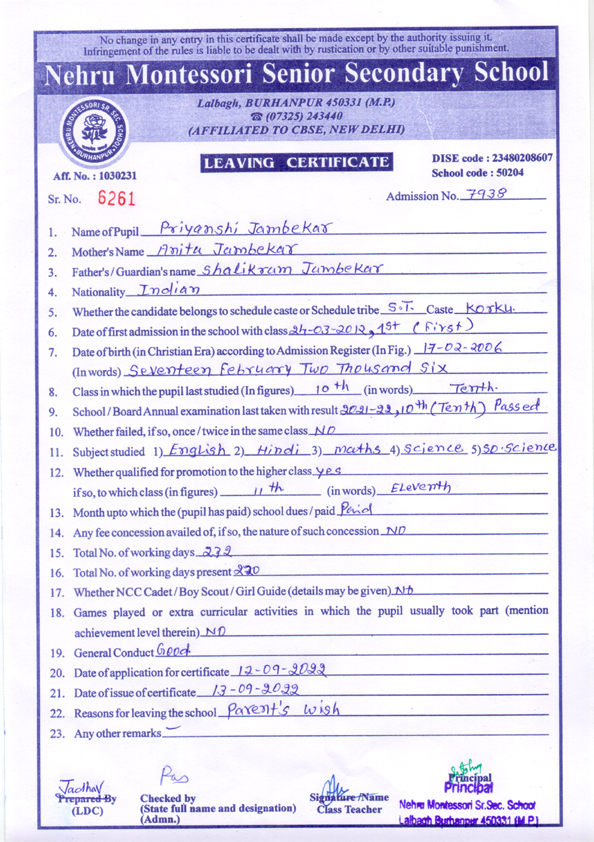 No change in any entry in this certificate shall be made except by the authority issuing it.
Infringement of the rules is liable to be dealt with by rustication or by other suitable punishment.
Nehru Montessori Senior Secondary School
Lalbagh, BURHANPUR 450331 (M.P.)
☎ (07325) 243440
(AFFILIATED TO CBSE, NEW DELHI)
NEHRU MONTESSORI SR. SEC. SCHOOL
BURHANPUR
LEAVING CERTIFICATE
DISE code : 23480208607
School code : 50204
Aff. No. : 1030231
Sr. No. 6261
Admission No. 7938
1. Name of Pupil Priyanshi Jambekar
2. Mother's Name Anita Jambekar
3. Father's / Guardian's name Shalikram Jambekar
4. Nationality Indian
5. Whether the candidate belongs to schedule caste or Schedule tribe S.T. Caste Korku.
6. Date of first admission in the school with class 24-03-2012, 1st (First)
7. Date of birth (in Christian Era) according to Admission Register (In Fig.) 17-02-2006
(In words) Seventeen February Two Thousand Six
8. Class in which the pupil last studied (In figures) 10th (in words) Tenth.
9. School / Board Annual examination last taken with result 2021-22, 10th (Tenth) Passed
10. Whether failed, if so, once / twice in the same class NO
11. Subject studied 1) English 2) Hindi 3) maths 4) Science 5) SO.Science
12. Whether qualified for promotion to the higher class yes
if so, to which class (in figures) 11th (in words) Eleventh
13. Month upto which the (pupil has paid) school dues / paid Paid
14. Any fee concession availed of, if so, the nature of such concession NO
15. Total No. of working days 232
16. Total No. of working days present 220
17. Whether NCC Cadet / Boy Scout / Girl Guide (details may be given) No
18. Games played or extra curricular activities in which the pupil usually took part (mention
achievement level therein) NO
19. General Conduct Good
20. Date of application for certificate 12-09-2022
21. Date of issue of certificate 13-09-2022
22. Reasons for leaving the school Parent's wish
23. Any other remarks —
Jadhav
Prepared By
(LDC)
Checked by
(State full name and designation)
(Admn.)
Signature /Name
Class Teacher
Principal
Principal
Nehru Montessori Sr.Sec. School
Lalbagh Burhanpur 450331 (M.P.)